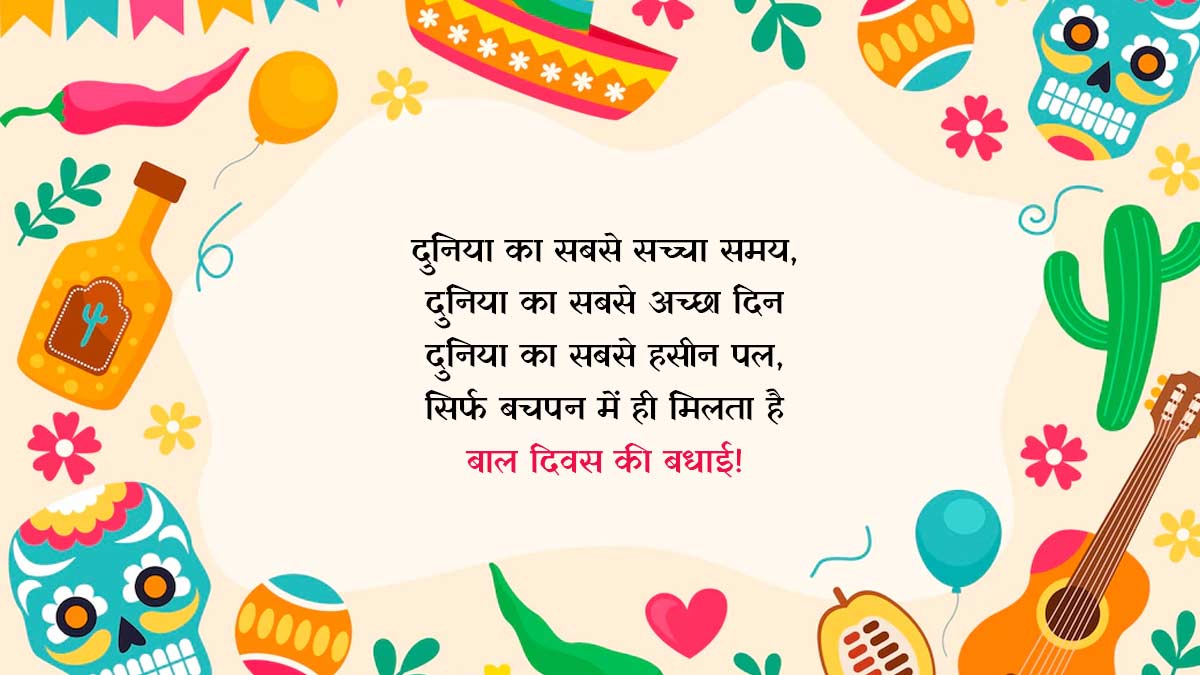 दुनिया का सबसे सच्चा समय,
दुनिया का सबसे अच्छा दिन
दुनिया का सबसे हसीन पल,
सिर्फ बचपन में ही मिलता है
बाल दिवस की बधाई!